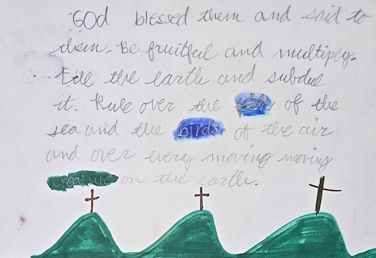 God blessed them and said to
them. Be fruitful and multiply.
Fill the earth and subdue
it. Rule over the fish of the
sea and the birds of the air
and over every moving moving
creature on the earth.